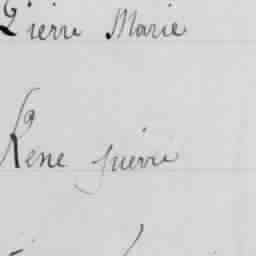 Pierre Marie
Rene Guerre